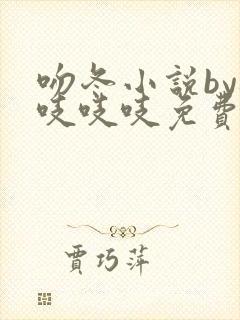 吻冬小説by
吱吱吱免費
賈巧萍